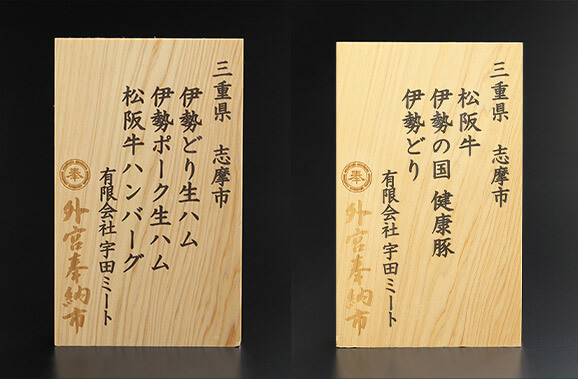 三重県 志摩市
伊勢どり生ハム
伊勢ポーク生ハム
松阪牛ハンバーグ
有限会社 宇田ミート
奉
外宮奉納市
三重県 志摩市
松阪牛
伊勢の国 健康豚
伊勢どり
有限会社 宇田ミート
奉
外宮奉納市